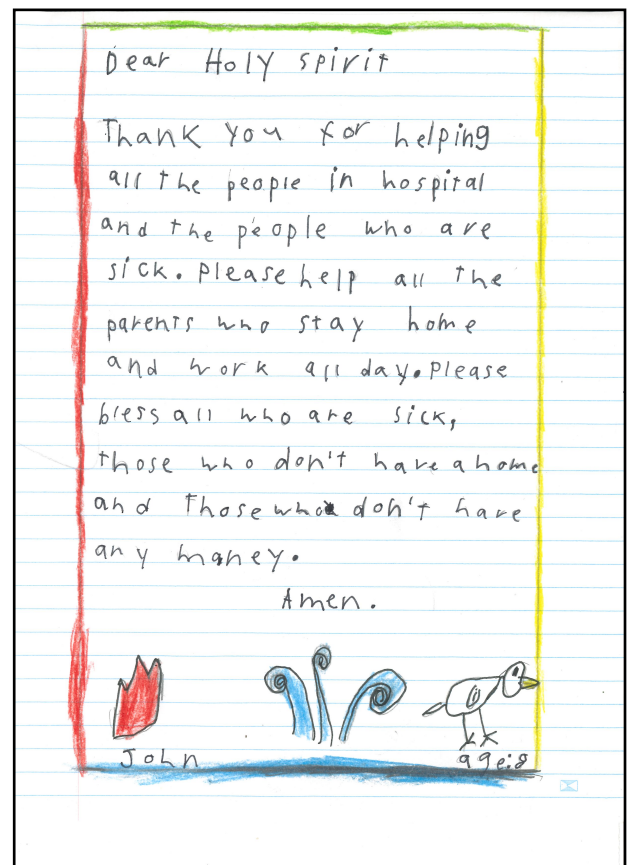 Dear Holy spirit
Thank you for helping
all the people in hospital
and the people who are
sick. Please help all the
parents who stay home
and work all day. Please
bless all who are sick,
those who don't have a home
and those who don't have
any maney.
Amen.
John
age:8